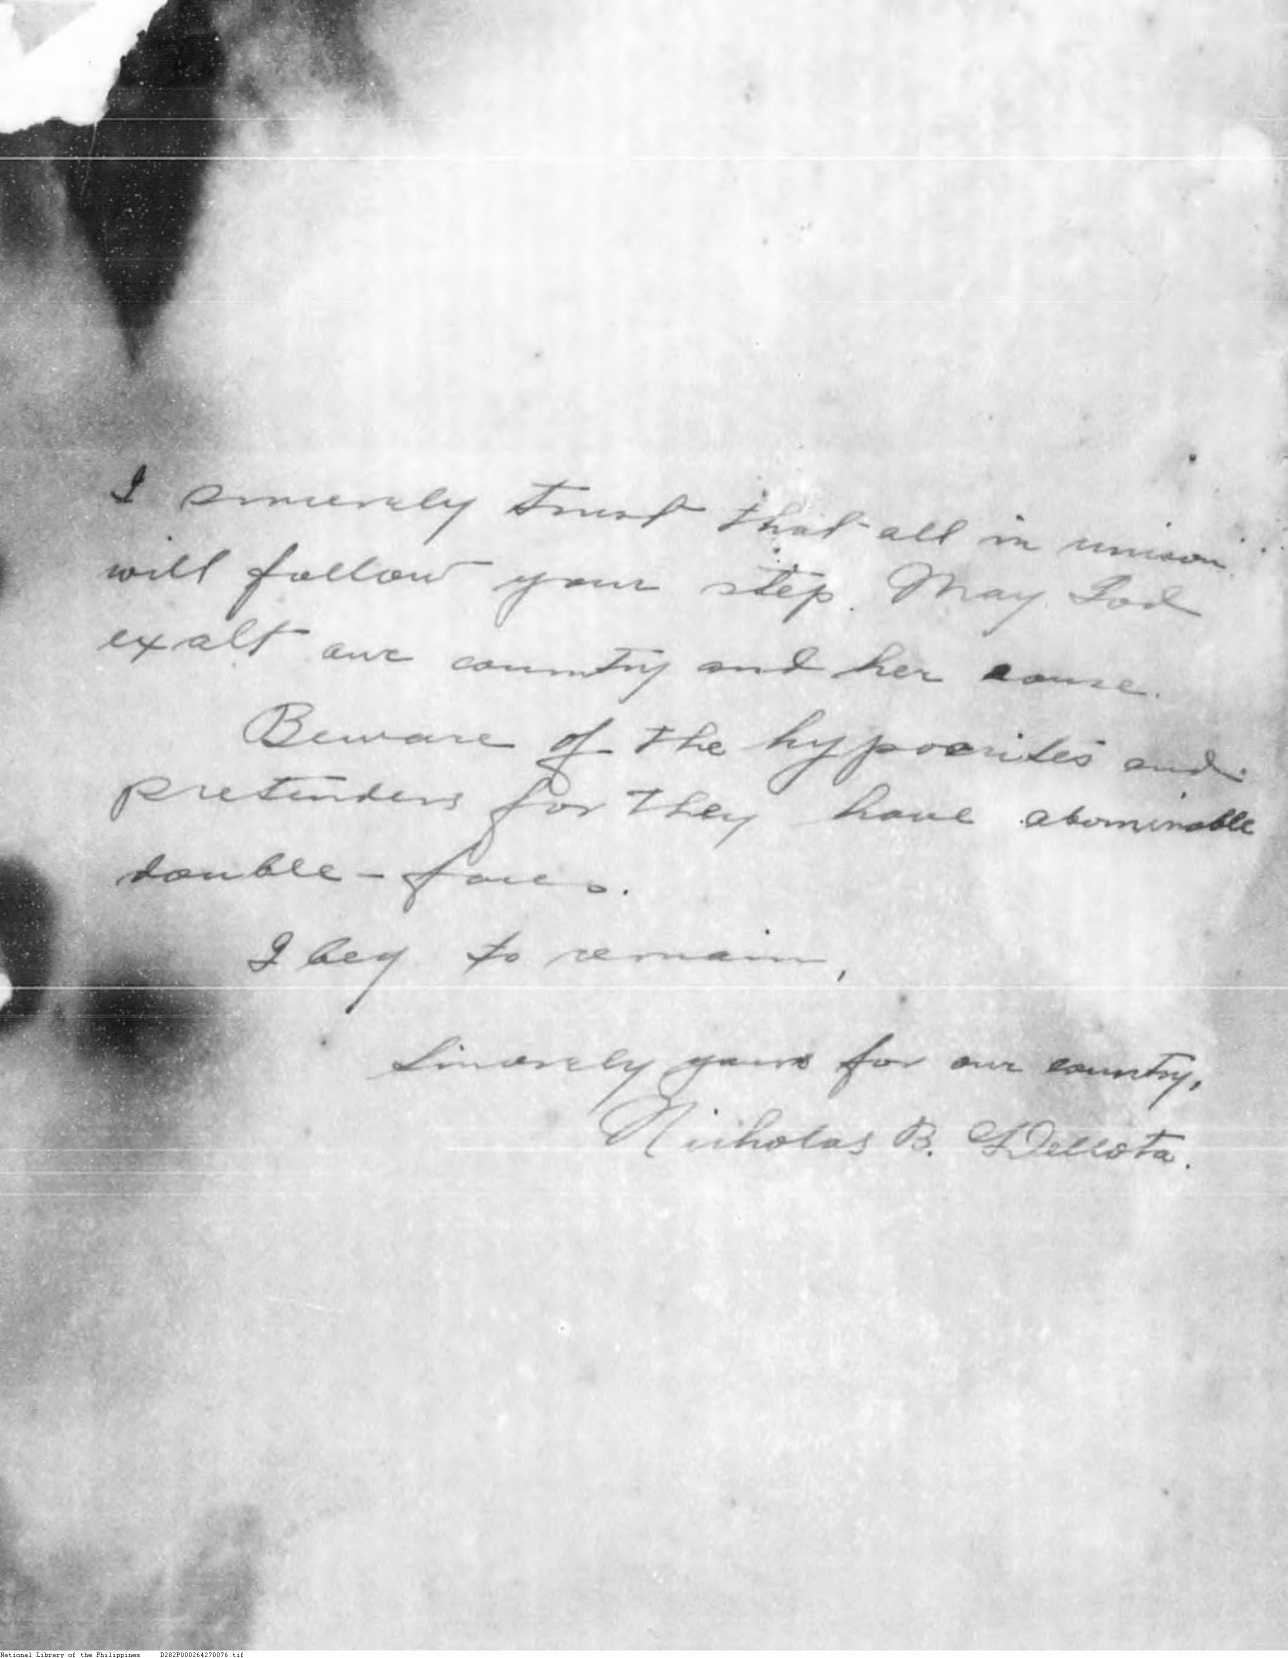 I sincerely trust that all in unison
will follow your step. May God
exalt our country and her cause.
Beware of the hypocrites and
pretenders for they have abominable
double-faces.
I beg to remain,
Sincerely yours for our country,
Nicholas B.
National Library of the Philippines D282P000264270076.tif